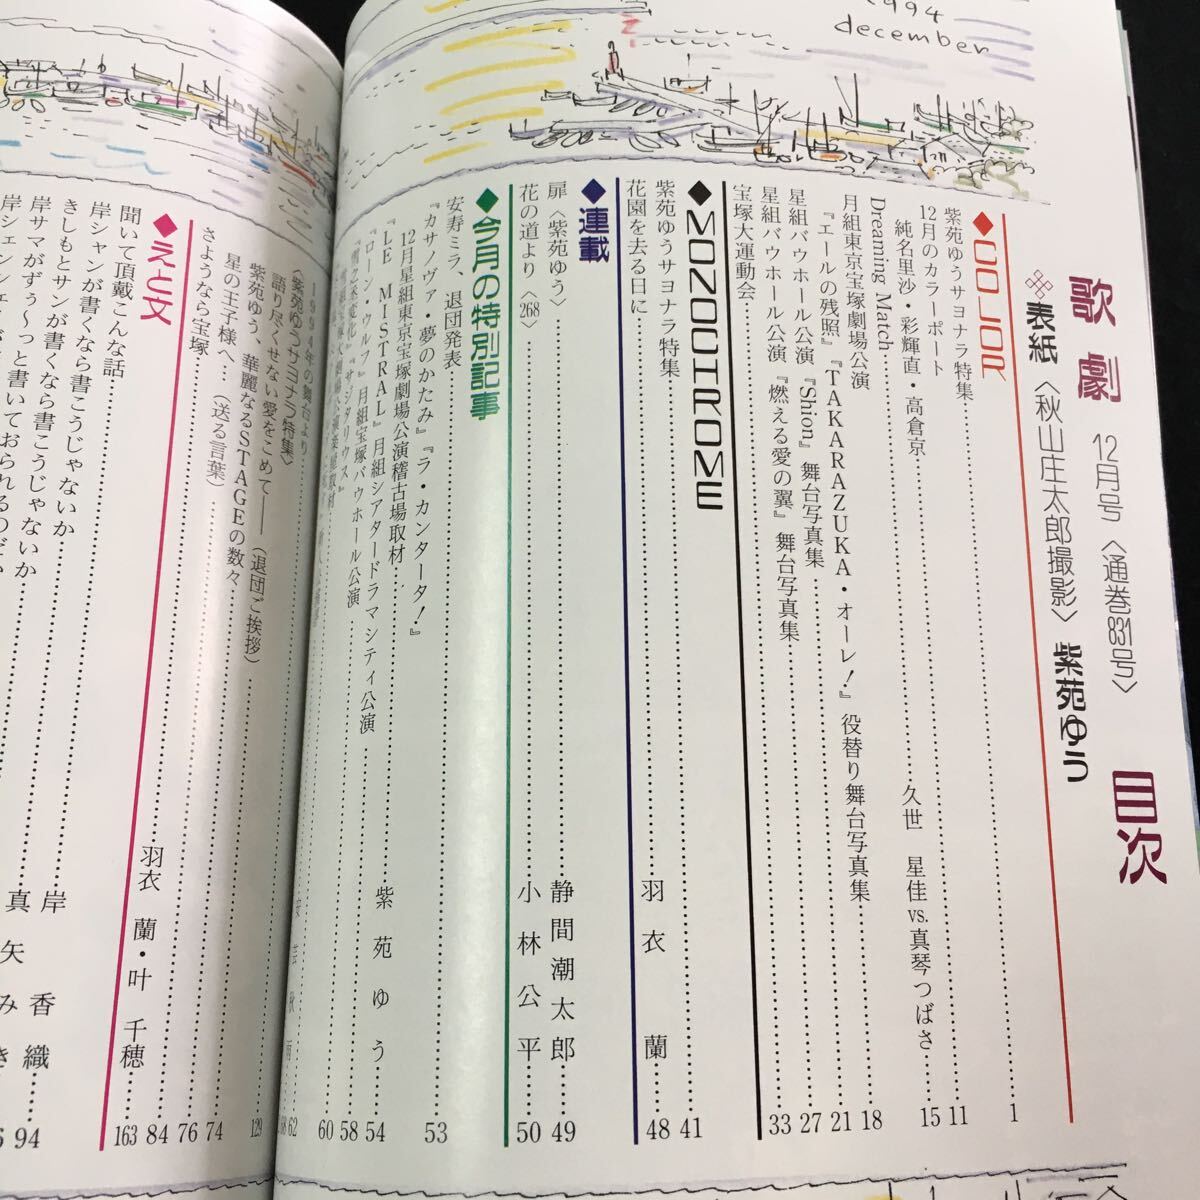 1994
december
歌劇 12月号 〈通巻831号〉 目次
表紙〈秋山庄太郎撮影〉紫苑ゆう
◆COLOR
紫苑ゆうサヨナラ特集 1
12月のカラーポート 11
純名里沙・彩輝直・高倉京
Dreaming Match 久世 星佳 vs.真琴つばさ 15
月組東京宝塚劇場公演
『エールの残照』『TAKARAZUKA・オーレ!』役替り舞台写真集 18
星組バウホール公演『Shion』舞台写真集 21
星組バウホール公演『燃える愛の翼』舞台写真集 27
宝塚大運動会 33
◆MONOCHROME
紫苑ゆうサヨナラ特集 41
花園を去る日に 羽衣 蘭 48
◆連載
扉〈紫苑ゆう〉 静間潮太郎 49
花の道より〈268〉 小林公平 50
◆今月の特別記事
安寿ミラ、退団発表 53
『カサノヴァ・夢のかたみ』『ラ・カンタータ!』
12月星組東京宝塚劇場公演稽古場取材 紫苑ゆう 54
『LE MISTRAL』月組シアタードラマシティ公演 58
『ローン・ウルフ』月組宝塚バウホール公演 60
1994年の舞台より 62
〈紫苑ゆうサヨナラ特集〉
語り尽くせない愛をこめて――(退団ご挨拶)
紫苑ゆう、華麗なるSTAGEの数々 129
星の王子様へ(送る言葉) 74
さようなら宝塚 76
◆えと文
聞いて頂戴こんな話 羽衣 蘭・叶 千穂 84
163
岸シャンが書くなら書こうじゃないか
きしもとサンが書くなら書こうじゃないか
岸サマがずぅ〜っと書いておられるのだい
岸 香織 94
真矢みき